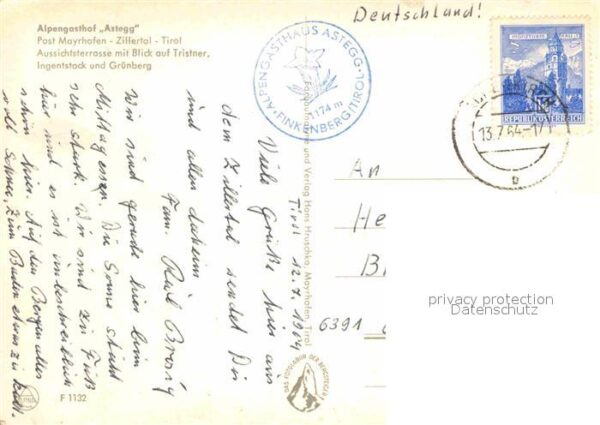 Alpengasthof „Astegg"
Post Mayrhofen - Zillertal - Tirol
Aussichtsterrasse mit Blick auf Tristner,
Ingentstock und Grünberg
Deutschland!
ALPENGASTHAUS ASTEGG
1174 m
FINKENBERG/TIROL
REPUBLIK ÖSTERREICH
13.7.64-17
b
Tirol 12.7.1964
Viele Grüße hier aus
dem Zillertal sendet Dir
und allen daheim
Fam.
Wir sind gerade hier beim
Mittagessen. Die Sonne sticht
sehr stark. Wir sind zu Fuß
hier und es ist unbeschreiblich
schön hier. Auf den Bergen alles
voll Schnee, zum Baden etwas zu kalt.
und Verlag Hans Hruschka, Mayrhofen, Tirol
An
He
B
6391
privacy protection
Datenschutz
DAS EDELWEISS DER BERGSTEIGER
F 1132